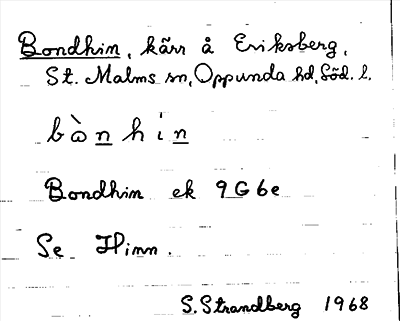 Bondhin, kärr å Eriksberg,
St. Malms sn, Oppunda hd, Söd. l.
bònhin
Bondhin ek 9G6e
Se Hinn.
S. Strandberg 1968